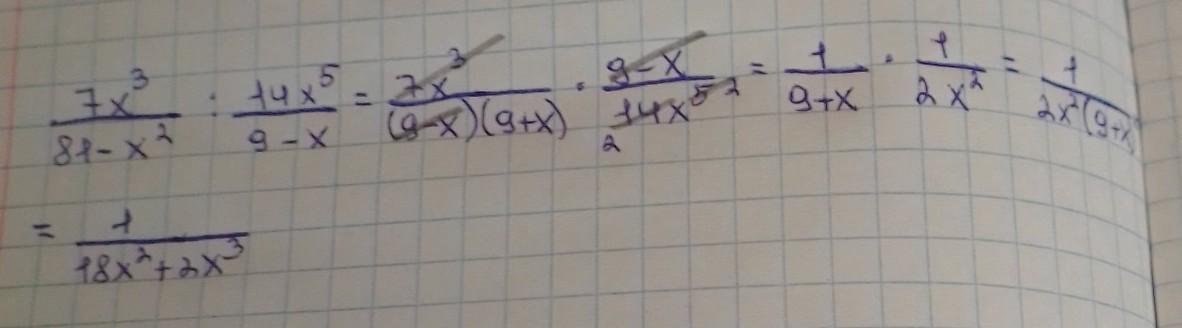 7x³/(81-x²) : 14x⁵/(9-x) = 7x³/((9-x)(9+x)) · (9-x)/(14x⁵) 2 2 = 1/(9+x) · 1/(2x²) = 1/(2x²(9+x)
= 1/(18x²+2x³)